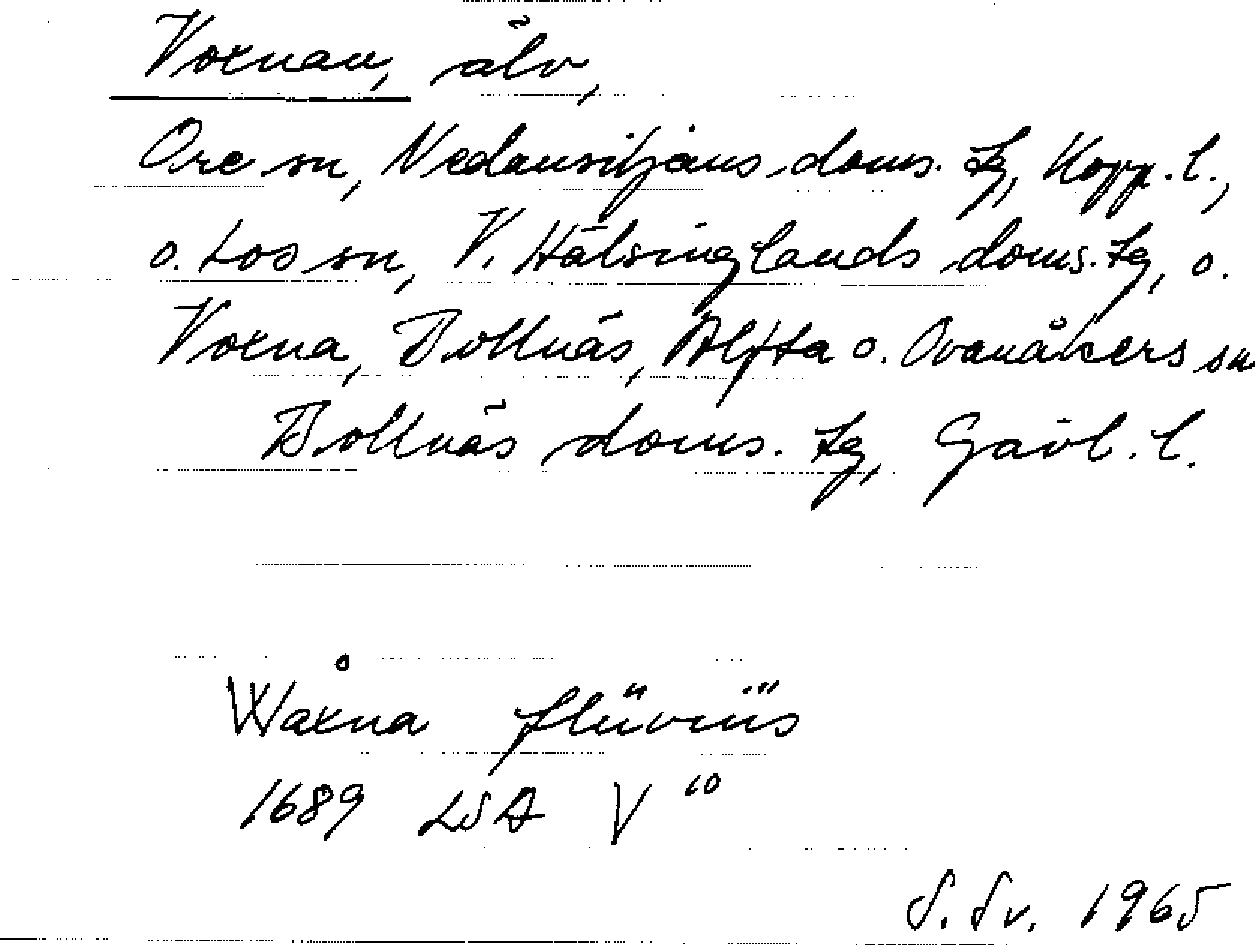 Voxnan, älv,
Ore sn, Nedansiljans doms. tg, Kopp. l.,
o. Los sn, V. Hälsinglands doms. tg, o.
Voxna, Bollnäs, Alfta o. Ovanåkers sn
Bollnäs doms. tg, Gävl. l.
Wåxna flüviüs
1689 LSA V 10
S. Sv. 1965